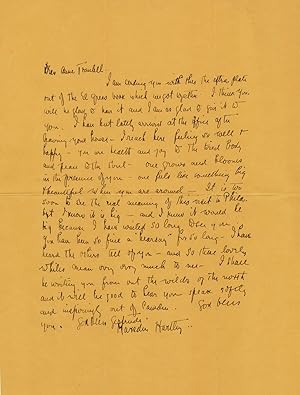 Dear Anne Traubel
I am sending you with this the extra plate
out of the El Greco book which
will be glad to have it and I am so glad to give it to
you. I have but lately arrived at the office after
leaving your house - I reach here feeling so well &
happy - you are health and joy to the tired body
and peace to the soul - one grows and blooms
in the presence of you - one feels like something big
& beautiful when you are around - It is too
soon to see the real meaning of this visit in Phila.
but I know it is big - and I know it would be
big because I have waited so long
You have been so fine a "hearsay" for so long. I have
heard the others tell of you - and so their lovely
whiles mean very very much to me. I shall
be writing you from out the wilds of the north
and it will be good to hear you speak softly
and inspiringly out of Camden. God bless
you. God bless Gertrude.
Marsden Hartley.